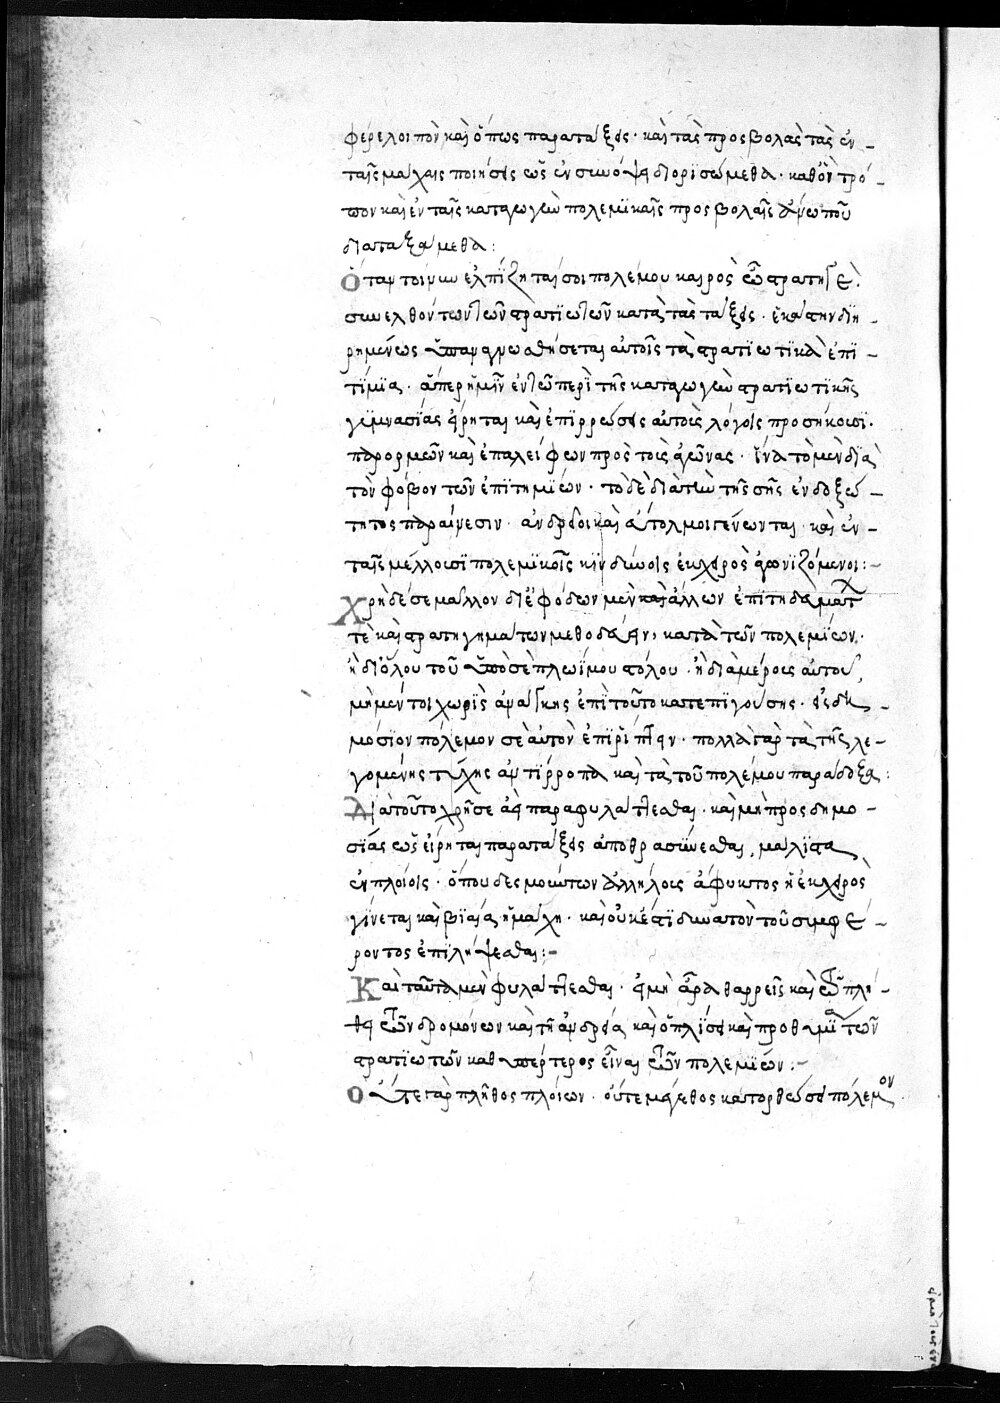 φέρε λοιπὸν καὶ ὅπως παρατάξεις · καὶ τὰς προσβολὰς τὰς ἐν
ταῖς μάχαις ποιήσεις ὡς ἐν συνόψει διορισώμεθα · καθ' ὃν τρό
πον καὶ ἐν ταῖς κατὰ γῆν πολεμικαῖς προσβολαῖς ἄνω που
διαταξάμεθα :
Ὅταν τοίνυν ἐλπίζηταί σοι πολέμου καιρὸς ὦ στρατηγέ ·
συνελθόντων τῶν στρατιωτῶν κατὰ τὰς τάξεις · ἑκάστην διῃ
ρημένως ὑπαναγνωσθήσεται αὐτοῖς τὰ στρατιωτικὰ ἐπι
τίμια · ἅπερ ἡμῖν ἐν τῷ περὶ τῆς κατὰ γῆν στρατιωτικῆς
γυμνασίας εἴρηται καὶ ἐπιρρώσεις αὐτοὺς λόγοις προσήκουσι ·
παρορμῶν καὶ ἐπαλείφων πρὸς τοὺς ἀγῶνας · ἵνα τὸ μὲν διὰ
τὸν φόβον τῶν ἐπιτιμίων · τὸ δὲ διὰ τὴν τῆς σῆς ἐνδοξό
τητος παραίνεσιν · ἀνδρεῖοι καὶ εὔτολμοι γένωνται · καὶ ἐν
ταῖς μέλλουσι πολεμικοῖς κινδύνοις ἐκ χειρὸς ἀγωνιζόμενοι :
Χρὴ δέ σε μᾶλλον δι' ἐφόδων μὲν καὶ ἄλλων ἐπιτηδευμάτ
τε καὶ στρατηγημάτων μεθοδεύειν κατὰ τῶν πολεμίων ·
ἢ δι' ὅλου τοῦ ὑπὸ σὲ πλωίμου στόλου · ἢ διὰ μέρους αὐτοῦ,
μὴ μέντοι χωρὶς ἀνάγκης ἐπὶ τοῦτο κατεπιγούσης · εἰς δη
μόσιον πόλεμον σεαυτὸν ἐπιρρίπτειν · πολλὰ γὰρ τὰ τῆς λε
γομένης τύχης ἀντίρροπα καὶ τὰ τοῦ πολέμου παράδοξα :
Διὰ τοῦτο χρή σε ἀεὶ παραφυλάττεσθαι · καὶ μὴ πρὸς δημο
σίας ὡς εἴρηται παρατάξεις ἀποθρασύνεσθαι, μάλιστα
ἐν πλοίοις · ὅπου δεσμούντων ἀλλήλους ἄφυκτος ἡ ἐκ χειρὸς
γίνεται καὶ βιαία ἡ μάχη · καὶ οὐκ ἔστι δυνατὸν τοῦ συμφέ
ροντος ἐπιλήψεσθαι :
Καὶ ταῦτα μὲν φυλάττεσθαι · εἰ μὴ ἄρα θαρρεῖς καὶ τῷ πλή
θει τῶν δρομόνων καὶ τῇ ἀνδρείᾳ καὶ ὁπλίσει καὶ προθυμίᾳ τῶν
στρατιωτῶν καθυπέρτερος εἶναι τῶν πολεμίων :
Οὔτε γὰρ πλῆθος πλοίων · οὔτε μέγεθος κατορθώσει πόλεμον